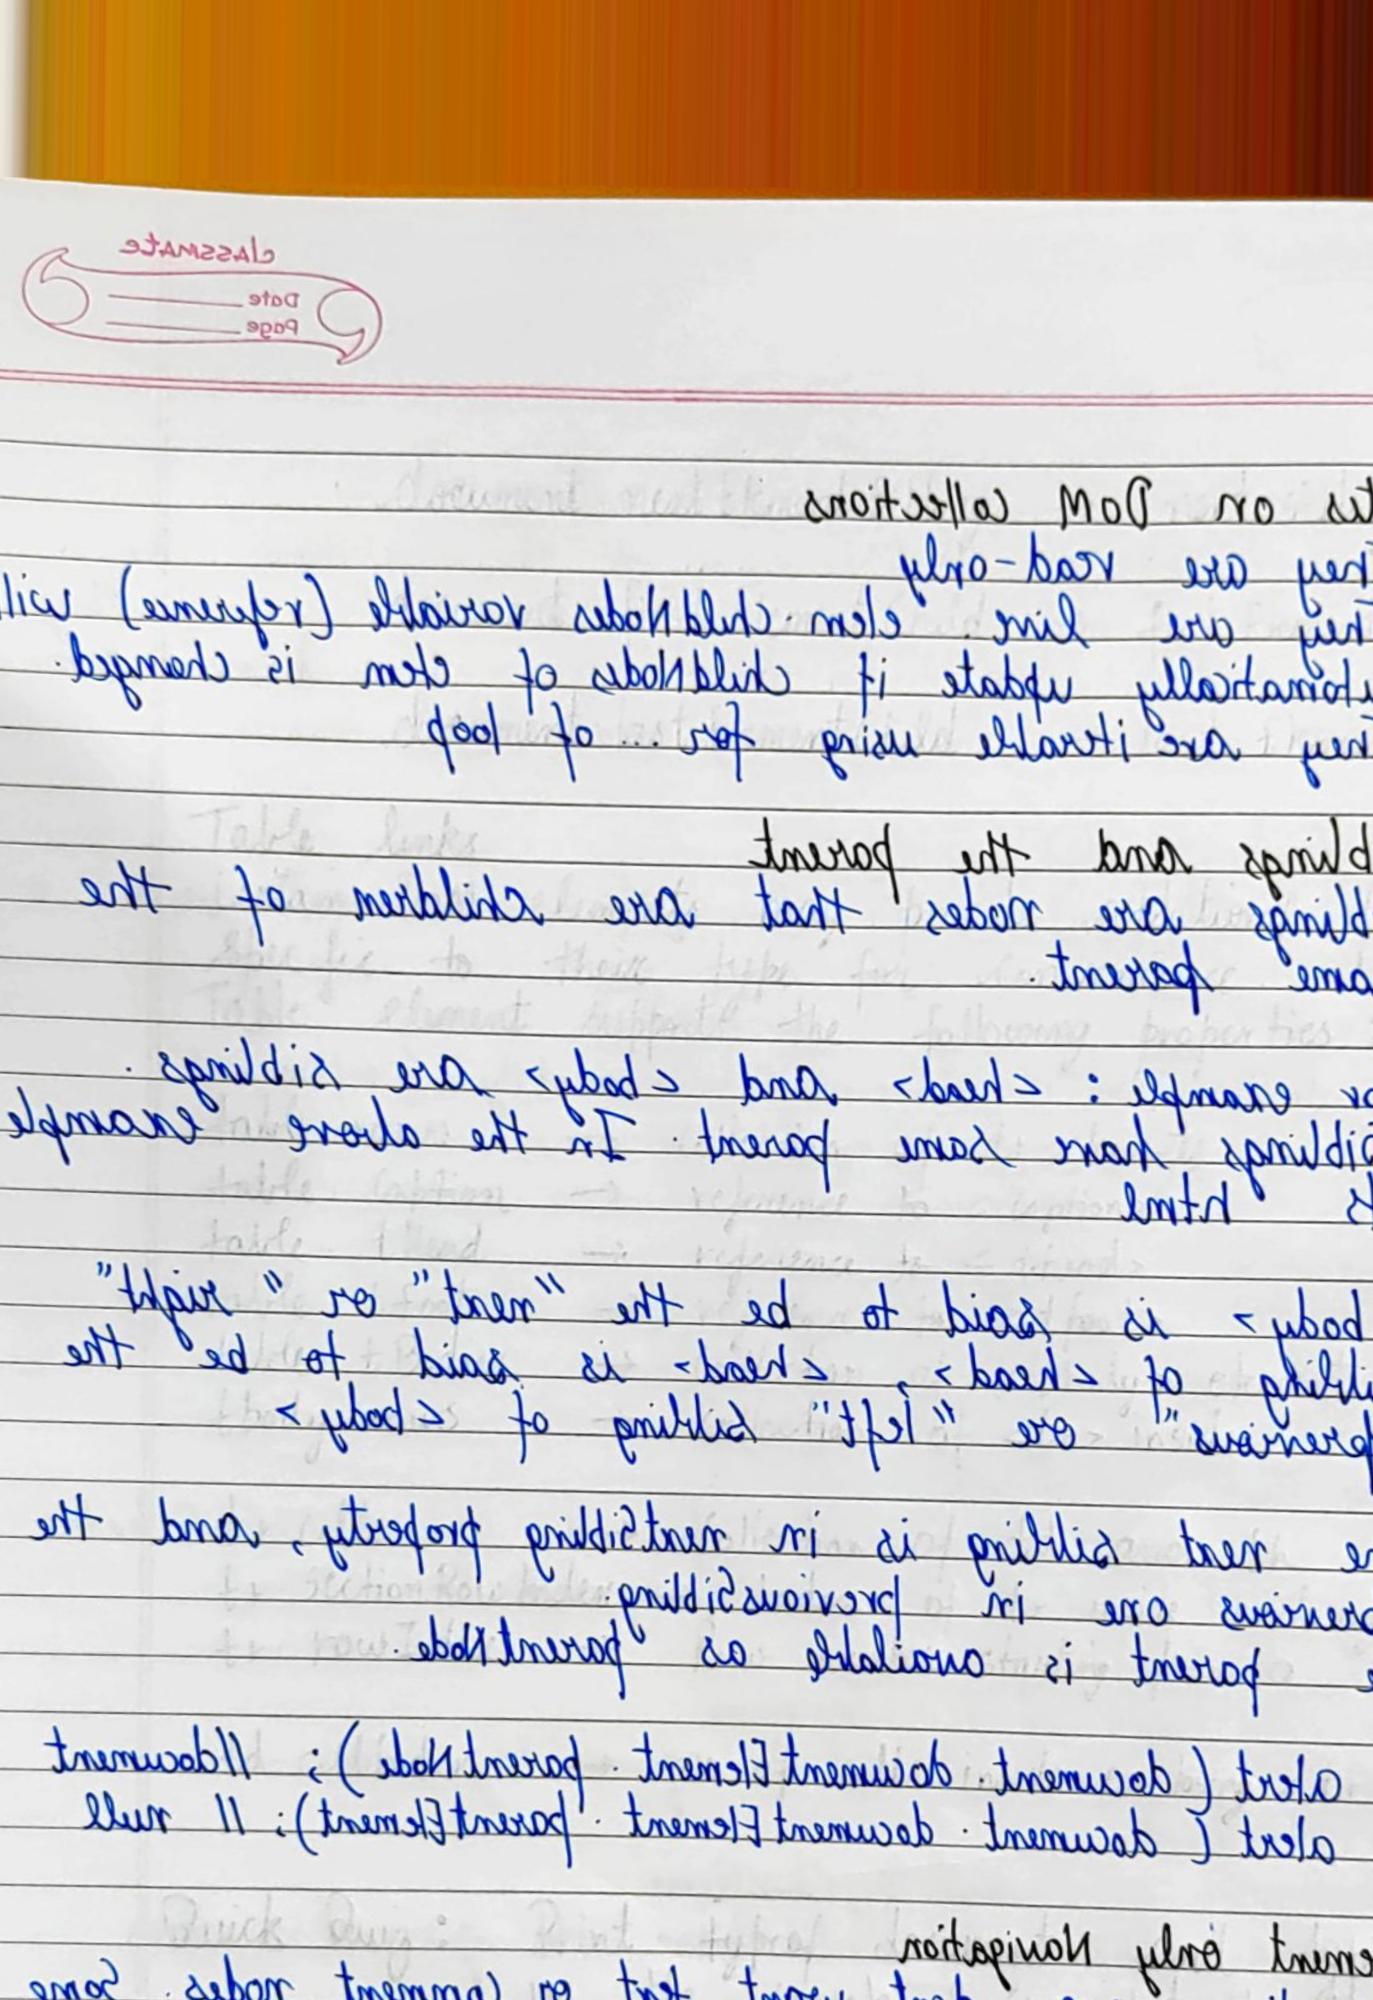 classmate
Date
Page
on DOM collections
are read-only
are live. elem.childNodes variable (reference) will
update if childNodes of elem is changed.
are iterable using for... of loop
and the parent
are nodes that are children of the
parent.
example: <head> and <body> are siblings.
have same parent. In the above example
html
body> is said to be the "next" or "right"
of <head>, <head> is said to be the
" ore "left" sibling of <body>
next sibling is in nextSibling property, and the
one in previousSibling.
parent is available as parentNode.
alert (document.documentElement.parentNode); //document
alert (document.documentElement.parentElement); // null
only Navigation
text or comment nodes. Some